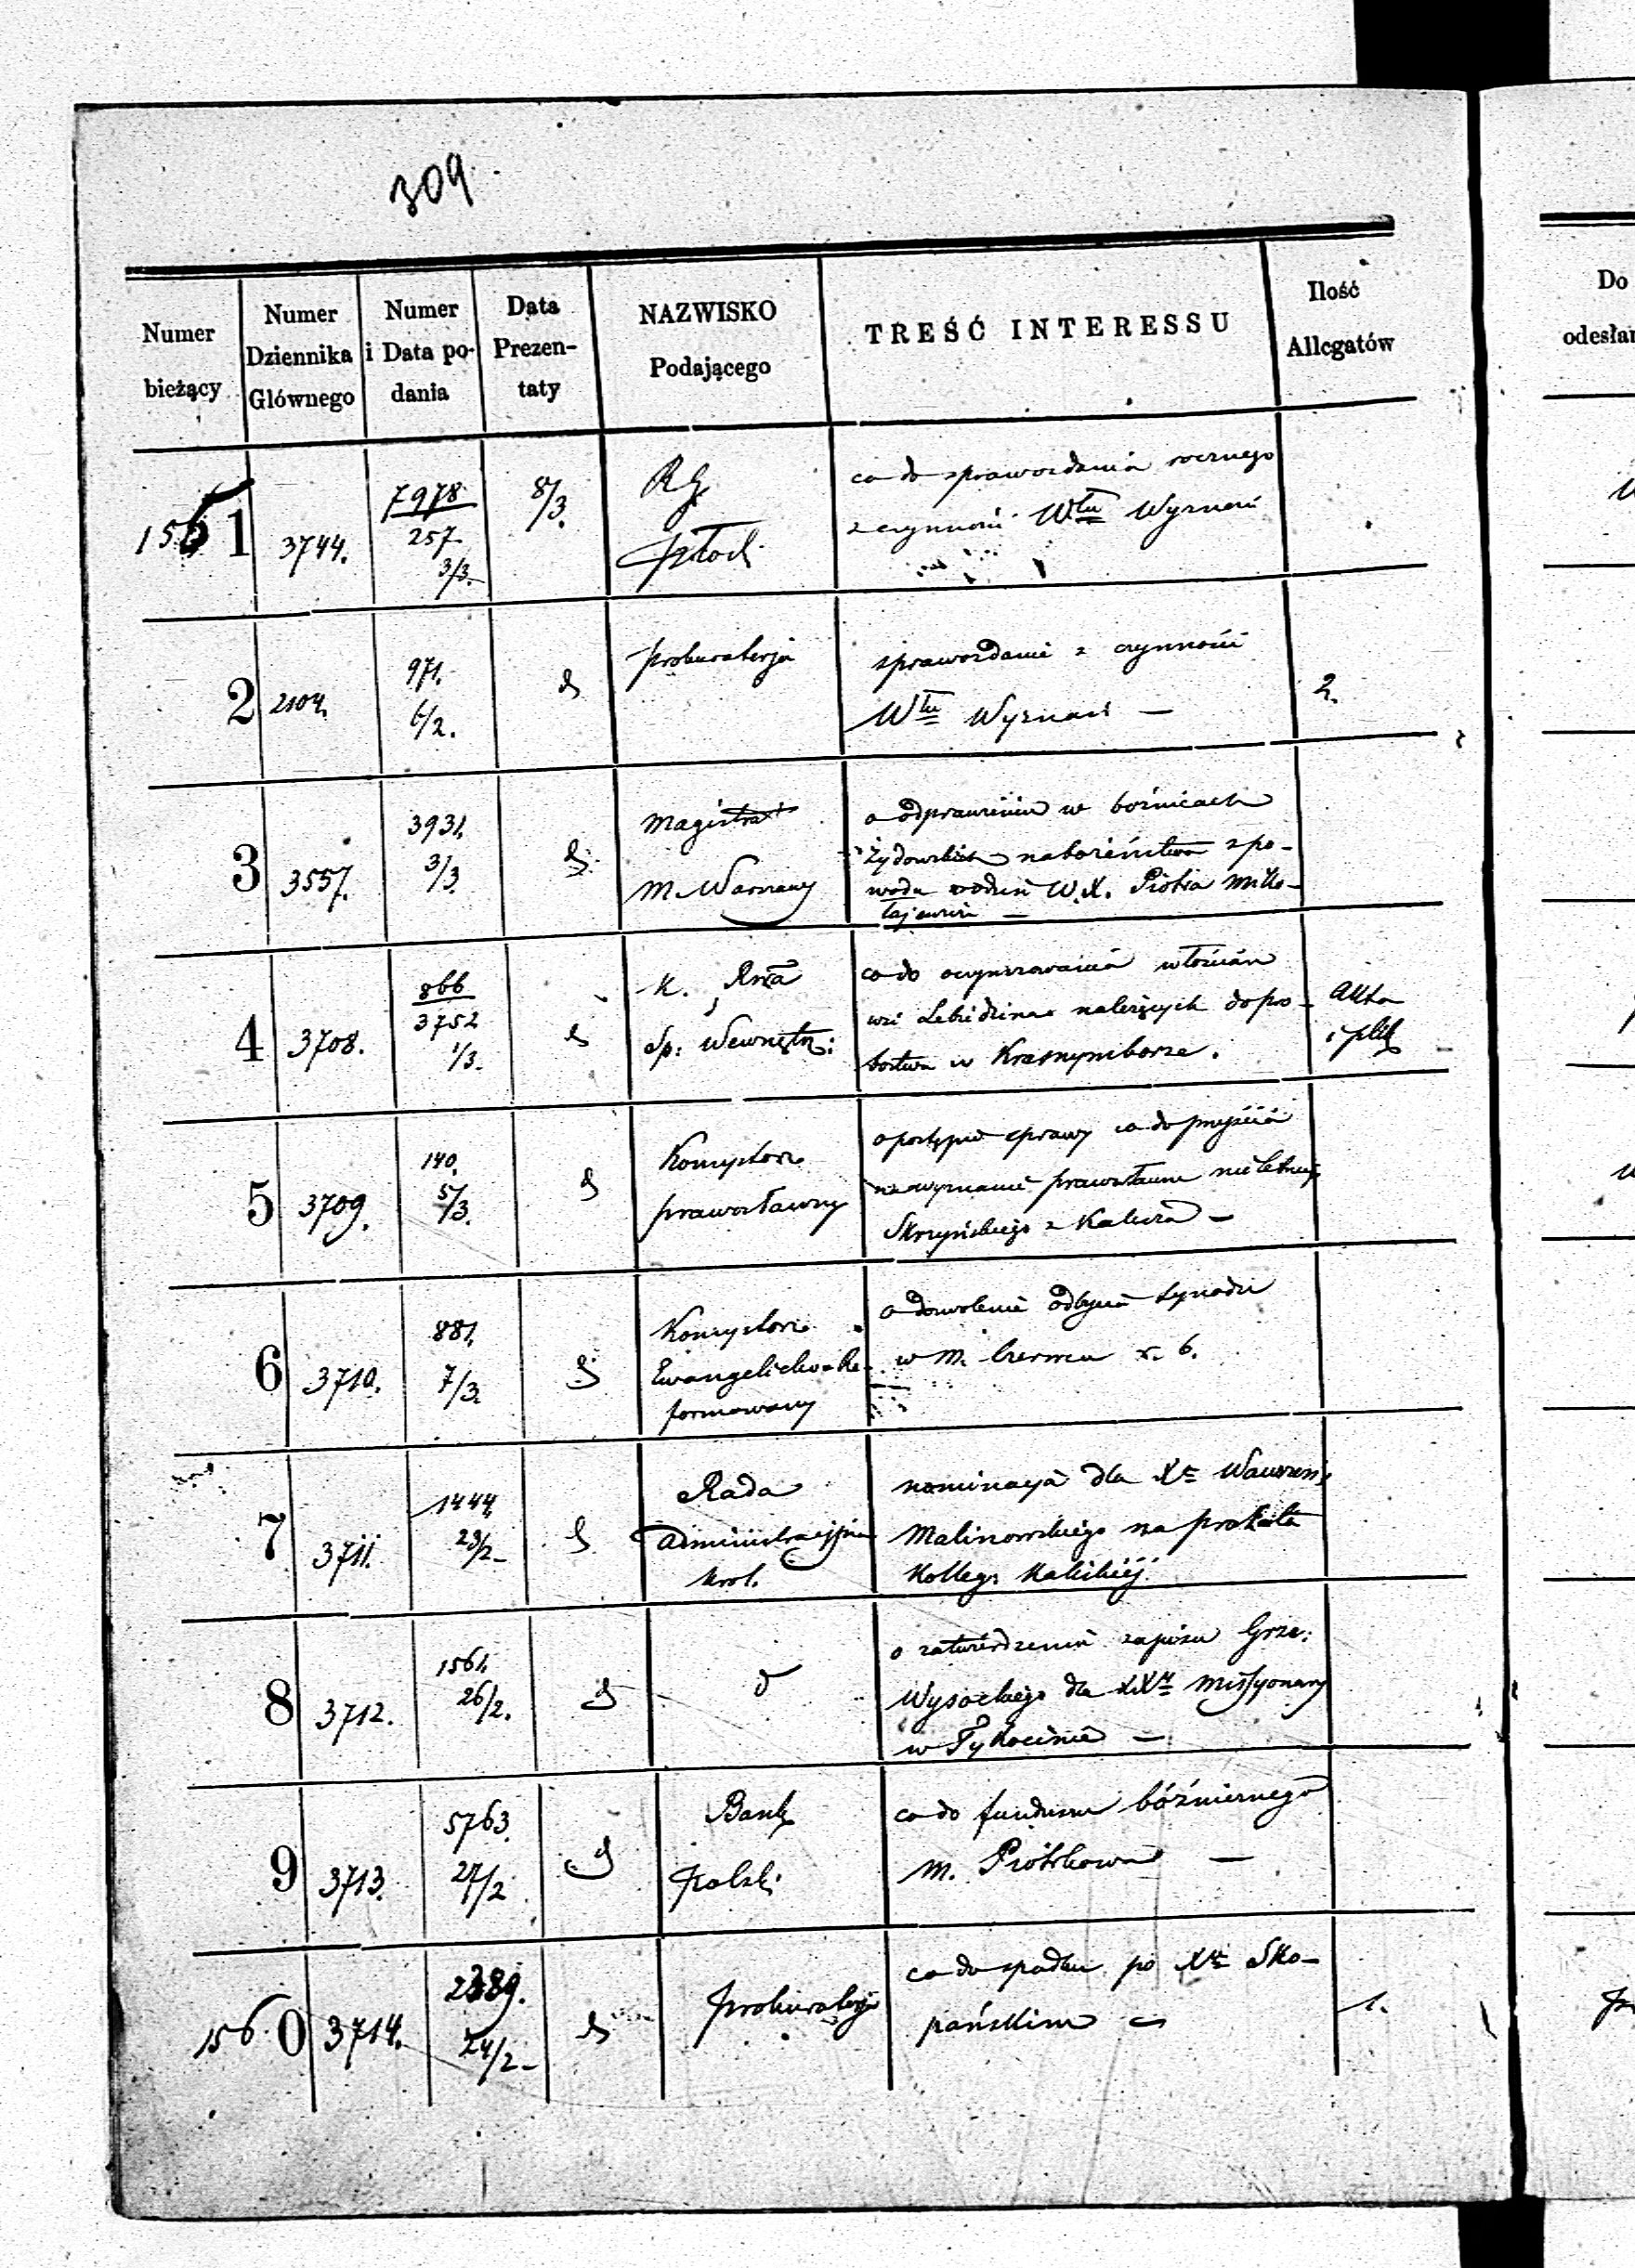 309.
Numer bieżący
Numer Dziennika Głównego
Numer i Data podania
Data Prezentaty
NAZWISKO Podającego
TREŚĆ INTERESSU
Ilość Allegatów
Do
odesłan
1551
3744.
7978
257
3/3.
8/3.
RG.
Płock
co do sprawozdania rocznego
z czynności Włu Wyznań
2
2104.
971.
6/2.
d
prokuratorja
sprawozdanie z czynności
Włu Wyznań —
2.
3
3557.
3931.
3/3.
d
Magistrat
m. Warszawy
o odprawieniu w bożnicach
żydowskich nabożeństwa z po-
wodu urodzin W.X. Piotra Miko-
łajewicza —
4
3708.
866
3752
1/3.
d
K. Rzą
Sp: Wewnętrz:
co do oczynszowania włościan
wsi Lebiedzina należących do pro-
bostwa w Krasnymborze.
Akta
i plik
5
3709.
140.
5/3.
d
Konsystorz
prawosławny
o postępie sprawy co do przejścia
na wyznanie prawosławne nieletniego
Skrzyńskiego z Kalisza —
6
3710.
881.
7/3.
d
Konsystorz
Ewangelicko-Re-
formowany
o dozwolenie odbycia Synodu
w m. Czerwcu r. b.
7
3711.
1444.
23/2.
d
Rada
Administracyjna
Krol.
nominacya dla Xa Wawrzeń:
Malinowskiego na prałata
Kolleg: Kaliskiéj.
8
3712.
1561.
26/2.
d
d
o zatwierdzenie zapisu Grze:
Wysockiego dla XXy Missyonarzy
w Tykocinie —
9
3713.
5763.
27/2
d
Bank
Polski
co do funduszu bóźnicznego
m. Piotrkowa —
1560
3714.
2389.
24/2.
d
prokuratorja
co do spadku po Xu Sko-
pańskim —
1.